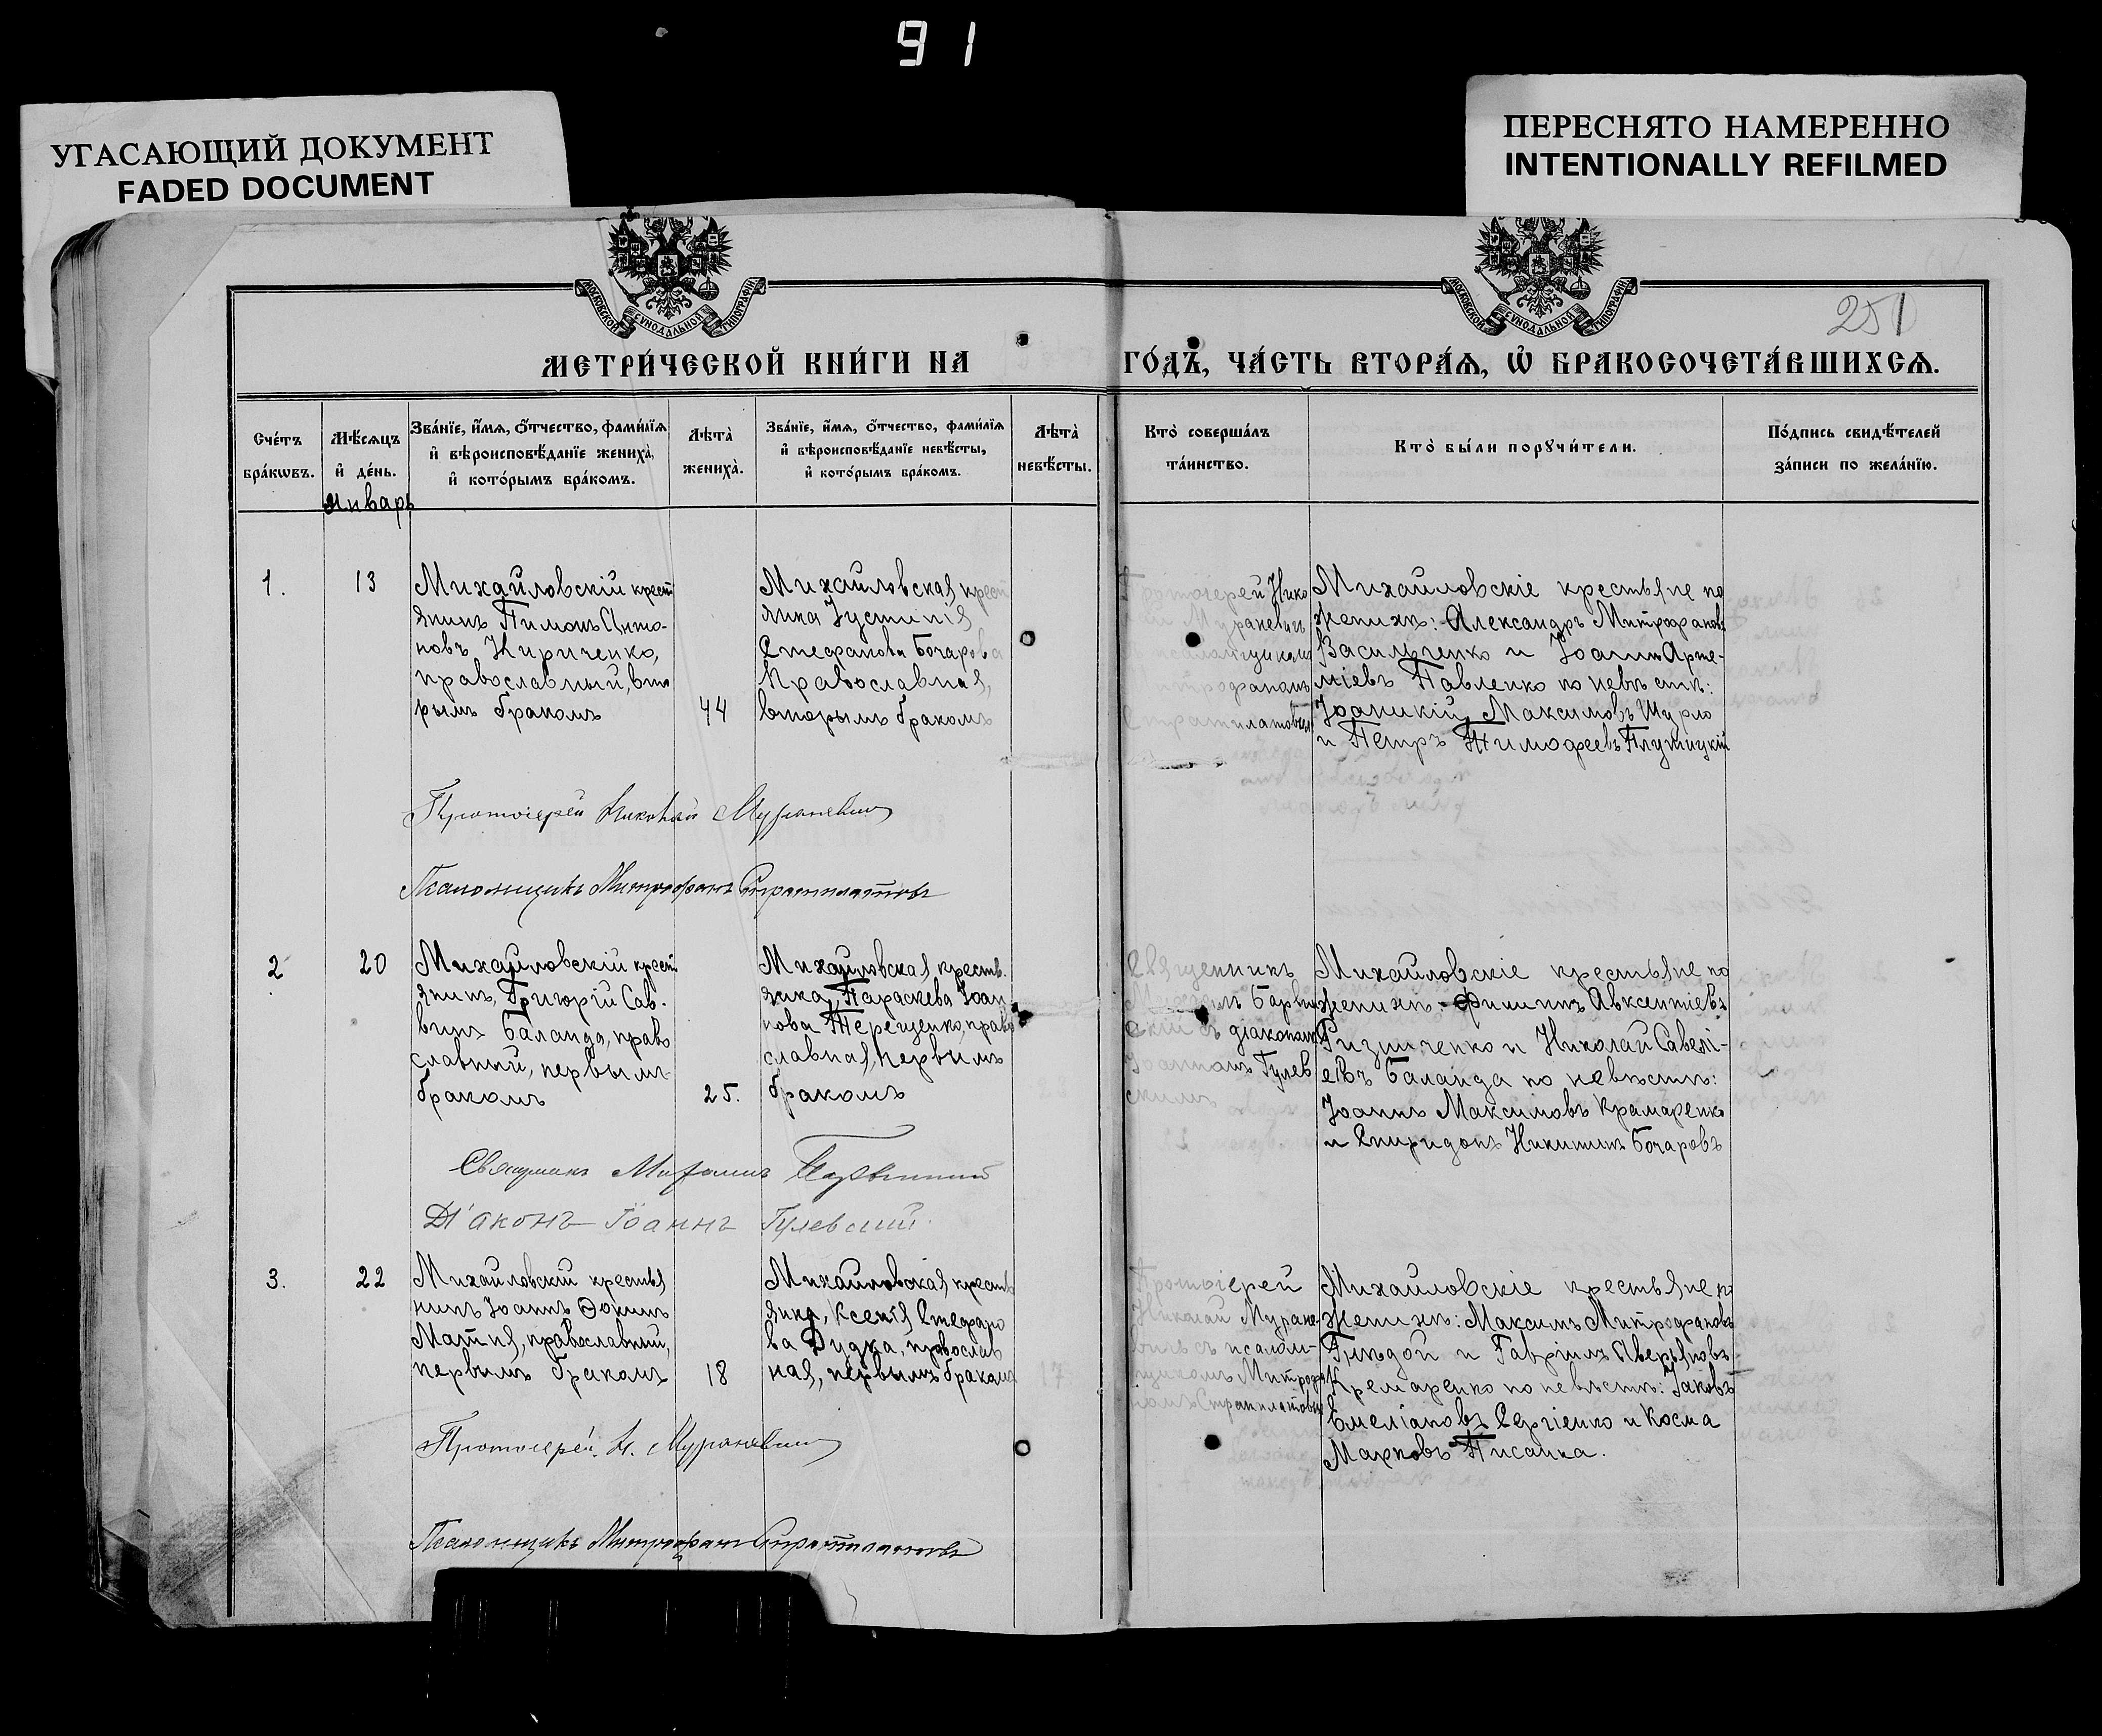 91
УГАСАЮЩИЙ ДОКУМЕНТ
FADED DOCUMENT
ПЕРЕСНЯТО НАМЕРЕННО
INTENTIONALLY REFILMED
МОСКОВСКОЙ СѴНОДАЛЬНОЙ ТИПОГРАФІИ
МОСКОВСКОЙ СѴНОДАЛЬНОЙ ТИПОГРАФІИ
251
МЕТРИ́ЧЕСКОЙ КНИ́ГИ НА ГО́ДЪ, ЧА́СТЬ ВТОРА́Ѧ, Ѡ҆ БРАКОСОЧЕТА́ВШИХСѦ.
Сче́тъ
бра́кѡвъ.
Мѣ́сѧцъ
и҆ де́нь.
Зва́нїе, и҆́мѧ, ѻ҆́тчество, фами́лїѧ
и҆ вѣроисповѣ́данїе жениха̀,
и҆ кото́рымъ бра́комъ.
Лѣта̀
жениха̀.
Зва́нїе, и҆́мѧ, ѻ҆́тчество, фами́лїѧ
и҆ вѣроисповѣ́данїе невѣ́сты,
и҆ кото́рымъ бра́комъ.
Лѣта̀
невѣ́сты.
Кто̀ соверша́лъ
та́инство.
Кто̀ бы́ли порꙋчи́тели.
По́дпись свидѣ́телей
за́писи по жела́нїю.
Январь
1.
13
Михайловскій крест
янинъ Пимонъ Анто-
новъ Кириченко,
православный, вто
рымъ бракомъ
44
Михайловская крест
янка Іустинія
Стефанова Бочарова
Православная,
вторымъ бракомъ
Протоіерей Нико
Мураневичъ
псаломщикомъ
Митрофаномъ
Стратилатовымъ
Михайловскіе крестьяне по
женихѣ: Александръ Митрофановъ
Васильченко и Іоаннъ Арте-
міевъ Павленко по невѣстѣ:
Іоаникій Максимовъ Шурло
и Петръ Тимофеевъ Плужицкій
Протоіерей Николай Мураневичъ
Псаломщикъ Митрофанъ Стратилатовъ
2
20
Михайловскій крест
янинъ, Григорій Сав-
винъ Баланда, право
славный, первымъ
бракомъ
25.
Михайловская, кресть-
янка, Параскева Іоан
нова Терещенко, право
славная, первымъ
бракомъ
Священникъ
Михаилъ Барвин
скій съ діакономъ
Іоанномъ Гулев
скимъ
Михайловскіе крестьяне по
женихѣ: Филиппъ Авксентіевъ
Ризниченко и Николай Савелі-
евъ Баланда по невѣстѣ:
Іоаннъ Максимовъ Крамаренко
и Спиридонъ Никитинъ Бочаровъ
Священникъ Михаилъ
Діаконъ Іоаннъ Гулевский.
3.
22
Михайловскій крестья
нинъ Іоаннъ Ѳокинъ
православный,
первымъ бракомъ
18
Михайловская, кресть
янка, Ксенія Стефано
ва Дудка, православ
ная, первымъ бракомъ
17
Протоіерей
Николай Муране-
вичъ съ псалом-
щикомъ Митрофа
номъ Стратилатовымъ
Михайловскіе крестьяне по
женихѣ: Максимъ Митрофановъ
Гнѣдой и Гавріилъ Аверьяновъ
Кремаренко по невѣстѣ: Іаковъ
Емеліановъ Сергіенко и Косма
Марковъ Писанка.
Протоіерей Н. Мураневичъ
Псаломщикъ Митрофанъ Стратилатовъ